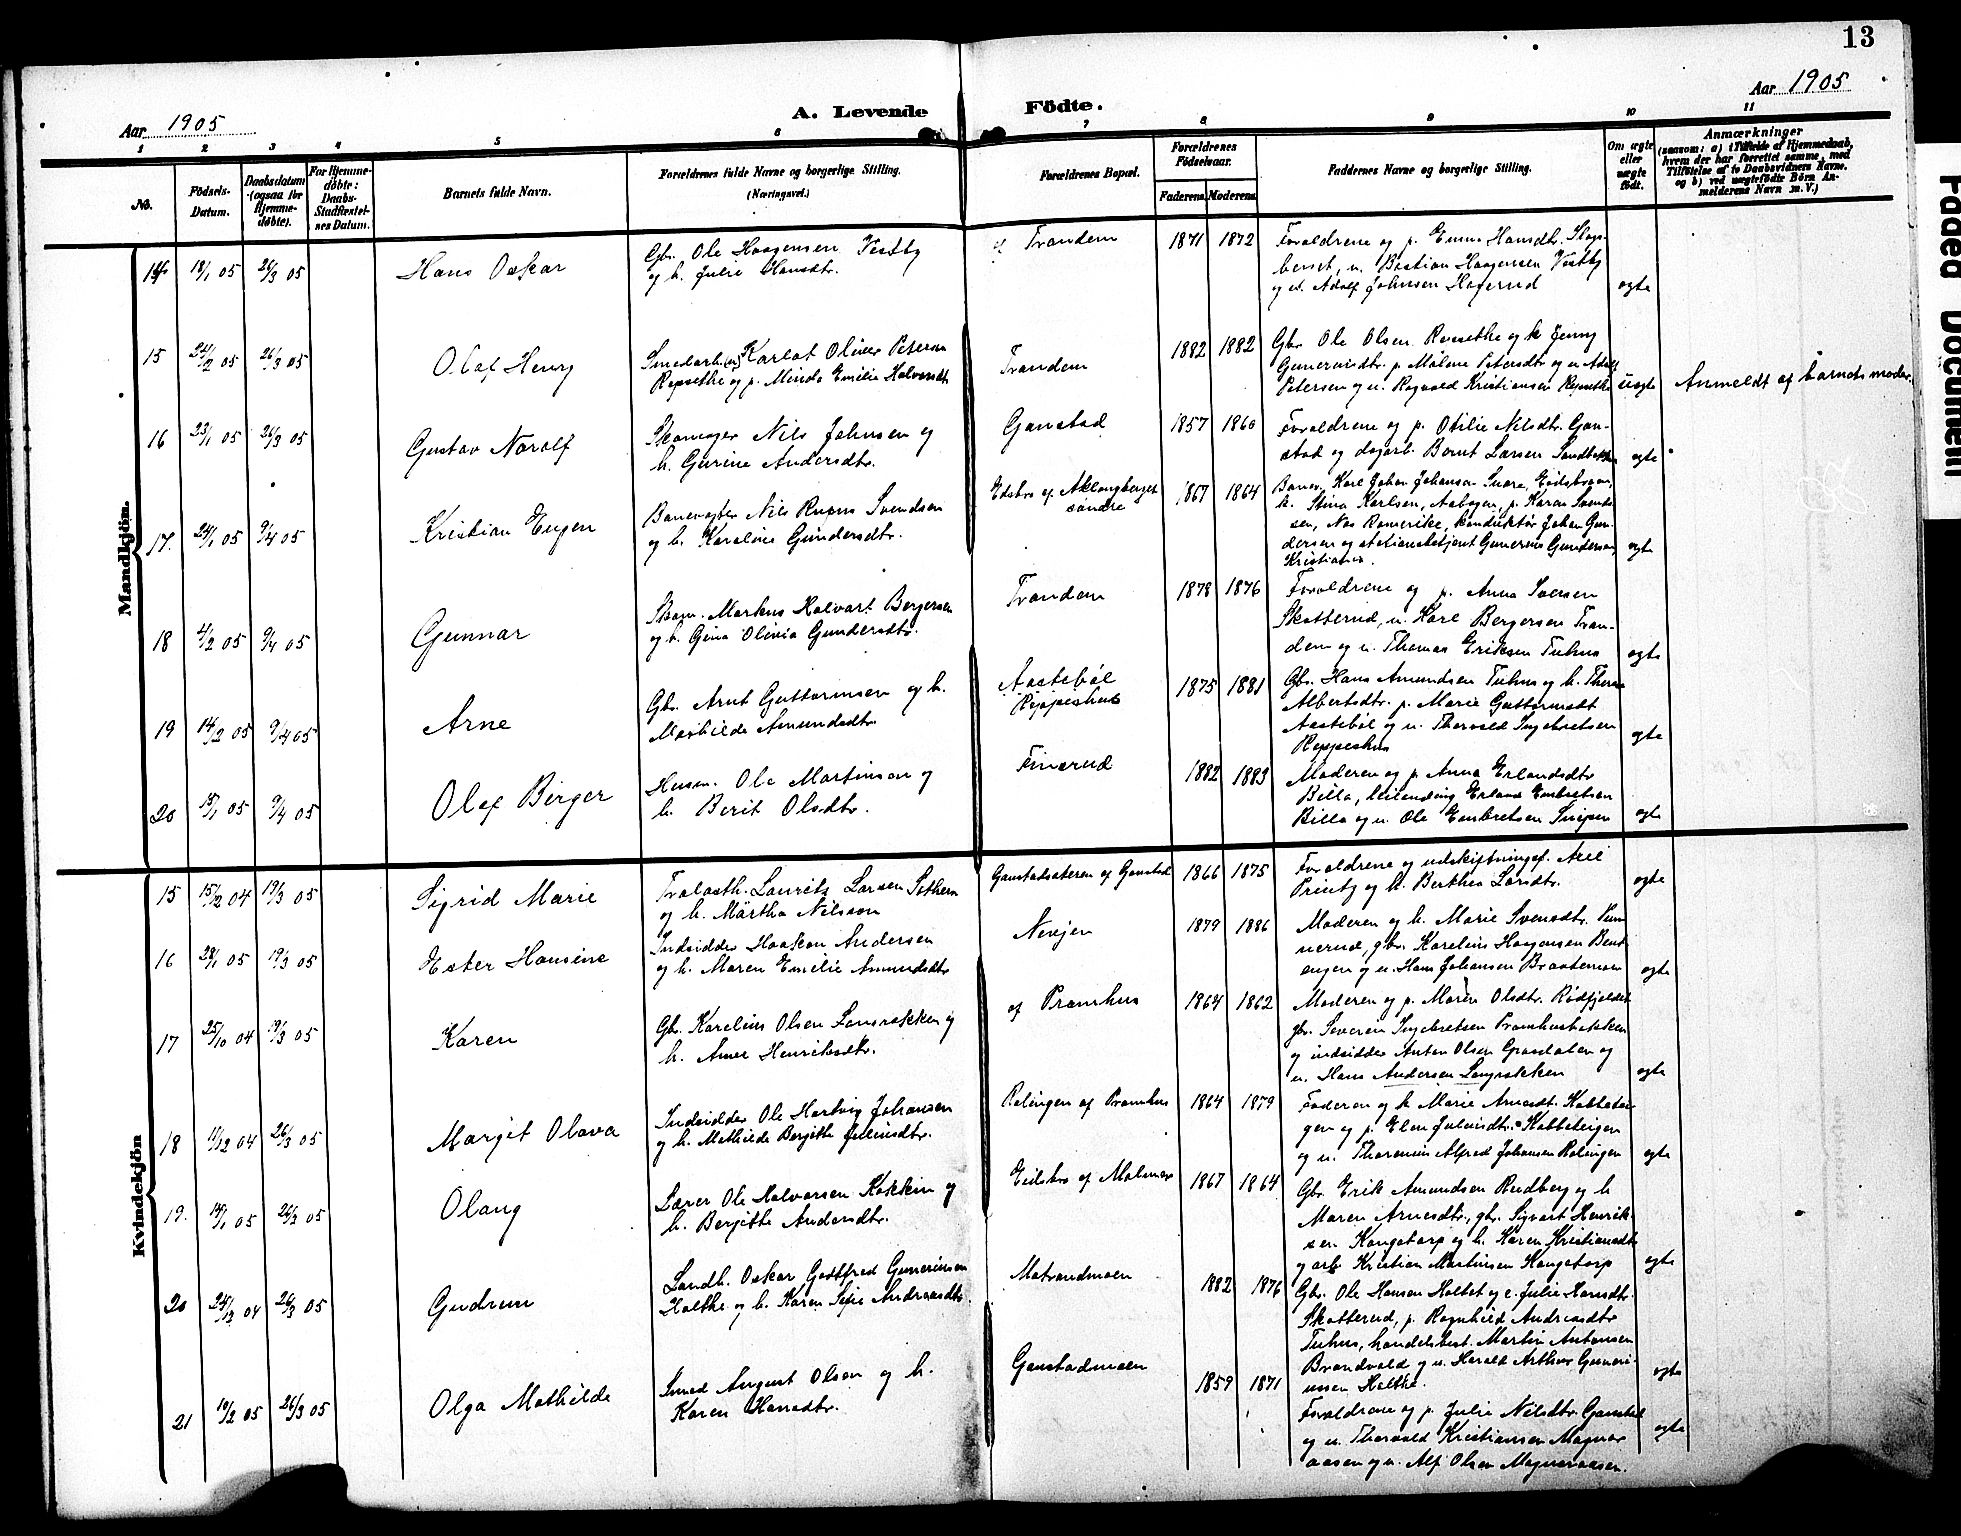 13
Aar 1905
A. Levende Födte.
Aar 1905
1 2 3 4 5 6 7 8 9 10 11
No.
Födsels-Datum.
Daabsdatum (ogsaa for Hjemme-döbte).
For Hjemme-döbte: Daabs-Stadfæstel-ses Datum.
Barnets fulde Navn.
Forældrenes fulde Navne og borgerlige Stilling.
(Næringsvei.)
Forældrenes Bopæl.
Forældrenes Födselsaar.
Faderens Moderens
Faddernes Navne og borgerlige Stilling.
Om ægte eller uægte født.
Anmærkninger
(saasom: a) i Tilfælde af Hjemmedaab, hvem der har forrettet samme, med Tilföielse af to Daabsvidners Navne, og b) ved uægtefödte Börn Anmelderens Navn m. V.)
Mandkjön.
14 18/1 05 26/3 05 Hans Oskar
Gbr. Ole Haagensen Vestby
og h. Julie Hansdtr.
af Trandem 1871 1872
Foraldrene og p. Emma Hansdtr. Slogs-
berset, u. Bastian Haagensen Vestby
og u. Adolf Johnsen Hagerud
egte
15 24/2 05 26/3 05 Olaf Henry
Smedarb. (u) Karlot Oliver Petersen
Repsethe og p. Minda Emilie Halvorsdtr
Trandem 1882 1882
Gbr. Ole Olsen Repsethe og k Jenny
Guneriusdtr. p. Malene Petersdtr og u Adolf
Petersen og u. Ragvald Kristiansen Repsethe
uegte
Anmeldt af barnets moder.
16 23/1 05 26/3 05 Gustav Noralf
Skomager Nils Johnsen og
h. Gurine Andersdtr.
Ganstad 1857 1860
Foraldrene og p. Otilie Nilsdtr. Gan-
stad og dagarb. Bernt Larsen Sandbakken
egte
17. 24/1 05 9/4 05 Kristian Eugen
Banevogter Nils Rupus Svendsen
og h. Karoline Gundersdtr.
Edsbro af Aklangberget
söndre
1867 1864
Banev. Karl Johan Johansen Snare, Eidsbroen,
h. Stina Karlsen, Aabogen, p. Karen Svend-
sen, Nes Romerike, konduktör Johan Gun-
dersen og stationsbetjent Gunerius Gundersen,
Kristiania.
egte
18 4/2 05 9/4 05 Gunnar
Skom. Markus Halvart Bergersen
og h. Gina Olivia Gundersdtr.
Trandem 1878 1876
Foraldrene og p. Anna Iversen
Skotterud, u. Karl Bergersen Tran-
dem og u. Thomas Eriksen Tuhus
egte
19 14/2 05 9/4 05 Arne
Gbr. Arnt Guttormsen og h.
Mathilde Amundsdtr.
Aastebøl
Reppeshus
1875 1881
Gbr. Hans Amundsen Tuhus og h. Thora
Albertsdtr. p. Marie Guttormsdt
Aastebøl og u. Thorvald Ingebretsen
Reppeshus
egte
20 15/1 05 9/4 05 Olaf Birger
Husm. Ole Martinsen og
h. Berit Olsdtr.
Finsrud 1882 1883
Moderen og p. Anna Erlandsdtr
Billa, leilending Erland Embretsen
Billa og u. Ole Embretsen Snipen
egte
Kvindekjön
15 15/12 04 19/3 05 Sigrid Marie
Tralasth. Laurits Larsen Sethern
og h. Märtha Nilsson
Ganstadsateren af Ganstad 1866 1875
Foraldrene og udskiftningsf. Axel
Printz og h. Berthea Larsdtr.
egte
16 28/1 05 19/3 05 Ester Hansine
Indsidder Haakon Andersen
og h. Maren Emilie Amundsdtr
Nevjen 1879 1886
Moderen og h. Marie Svensdtr.
nerud, gbr. Karelius Haagensen Bent-
engen og u. Hans Johansen Braatemoen
egte
17 25/10 04 19/3 05 Karen
Gbr. Karelius Olsen Langrakken og
h. Anne Henriksdtr.
af Pramhus 1864 1862
Moderen og p. Maren Olsdtr. Rødfjeldet
gbr. Severin Ingebretsen Pramhusbakken
og indsidder Anton Olsen Grasdalen og
u. Hans Andersen Langrakken
egte
18 11/12 04 26/3 05 Margit Olava
Indsidder Ole Hartvig Johansen
og h. Mathilde Bergitte Juliusdtr.
Rolingen af Pramhus 1864 1879
Faderen og h Marie Arnesdt. Kabbetor-
gen og p. Elen Juliusdtr. Kabbetorgen
og u. Thorenius Alfred Johansen Rolingen
egte
19. 14/1 05 26/3 05 Olaug
Lærer Ole Halvorsen Kokkin og
h. Bergitte Andersdtr.
Eidsbro af Malmer 1867 1864
Gbr. Erik Amundsen Rudberg og h
Maren Arnesdtr., gbr. Sigvart Henrik-
sen Kongetorp og h. Karen Kristiansdtr
og arb. Kristian Martinsen Kongetorp
egte
20 24/12 04 26/3 05 Gudrun
Landh. Oskar Godtfred Guneriusen
Holthe og h. Karen Sofie Andreasdtr.
Matrandmoen 1882 1876
Gbr. Ole Hansen Holtet og e. Julie Hansdtr.
Skotterud, p. Ragnhild Andreasdtr
Tuhus, handelsbest. Martin Antonsen
Brandvold og u. Harald Arthur Guneri-
ussen Holthe.
egte
21 10/2 05 26/3 05 Olga Mathilde
Smed August Olsen og h.
Karen Hansdtr.
Ganstadmoen 1859 1871
Foraldrene og p. Julie Nilsdtr. Ganstad
og u. Thorvald Kristiansen Magnor
aasen og u. Alf Olsen Magnoraasen.
egte
Faded Document